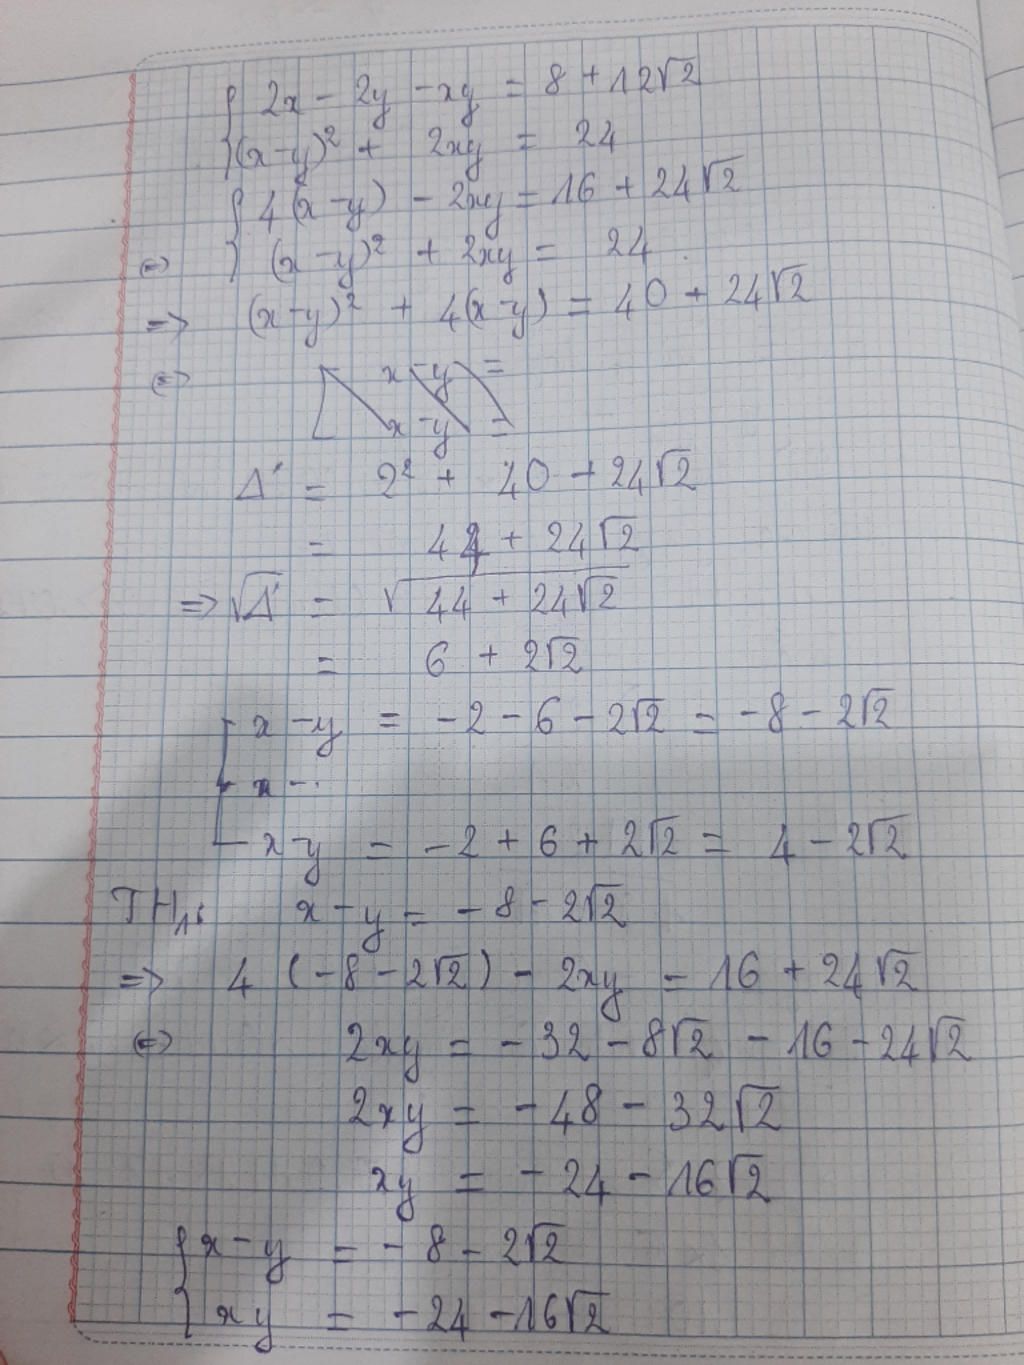 { 2x - 2y - xy = 8 + 12√2
{ (x-y)² + 2xy = 24
{ 4(x-y) - 2xy = 16 + 24√2
⇔ { (x-y)² + 2xy = 24
⇒ (x-y)² + 4(x-y) = 40 + 24√2
⇔ [ x-y =
[ x-y =
Δ' = 2² + 40 + 24√2
= 44 + 24√2
⇒ √Δ' = √(44 + 24√2)
= 6 + 2√2
[ x-y = -2-6-2√2 = -8-2√2
x-
[ x-y = -2+6+2√2 = 4-2√2
TH1: x-y = -8-2√2
⇒ 4(-8-2√2) - 2xy = 16 + 24√2
⇔ 2xy = -32-8√2 -16-24√2
2xy = -48-32√2
xy = -24-16√2
{ x-y = -8-2√2
{ xy = -24-16√2